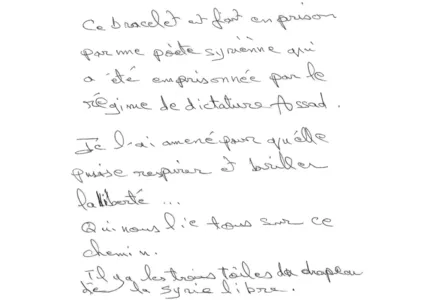 Ce bracelet et fait en prison
par une poète syrienne qui
a été emprisonnée par le
régime de dictature Assad.
Je l'ai amené pour qu'elle
puisse respirer et briller
la liberté ...
Qui nous lie tous sur ce
chemin.
Il y a les trois étoiles du drapeau
de la syrie libre.